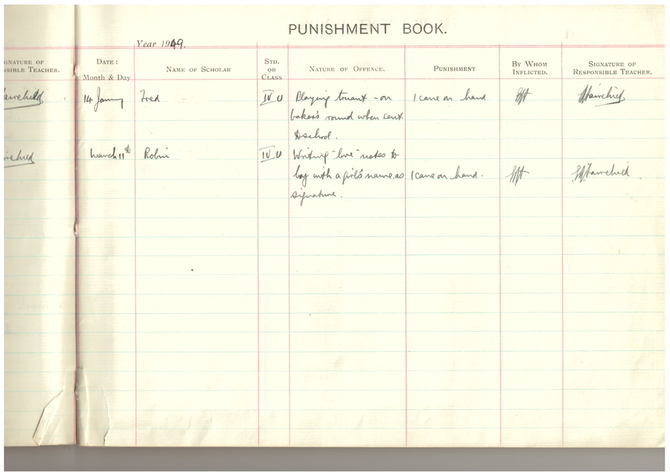 PUNISHMENT BOOK.
Year 1949.
SIGNATURE OF RESPONSIBLE TEACHER.
DATE: Month & Day
NAME OF SCHOLAR
STD. OR CLASS
NATURE OF OFFENCE.
PUNISHMENT
BY WHOM INFLICTED.
SIGNATURE OF RESPONSIBLE TEACHER.
Fairchild
14 Fred IV U Playing truant - on 1 cane on hand Fairchild
baker's round when sent
to school.
Fairchild
March 11th Robin IV U Writing "love" notes to
boy with a girl's name as 1 cane on hand. Fairchild
signature.